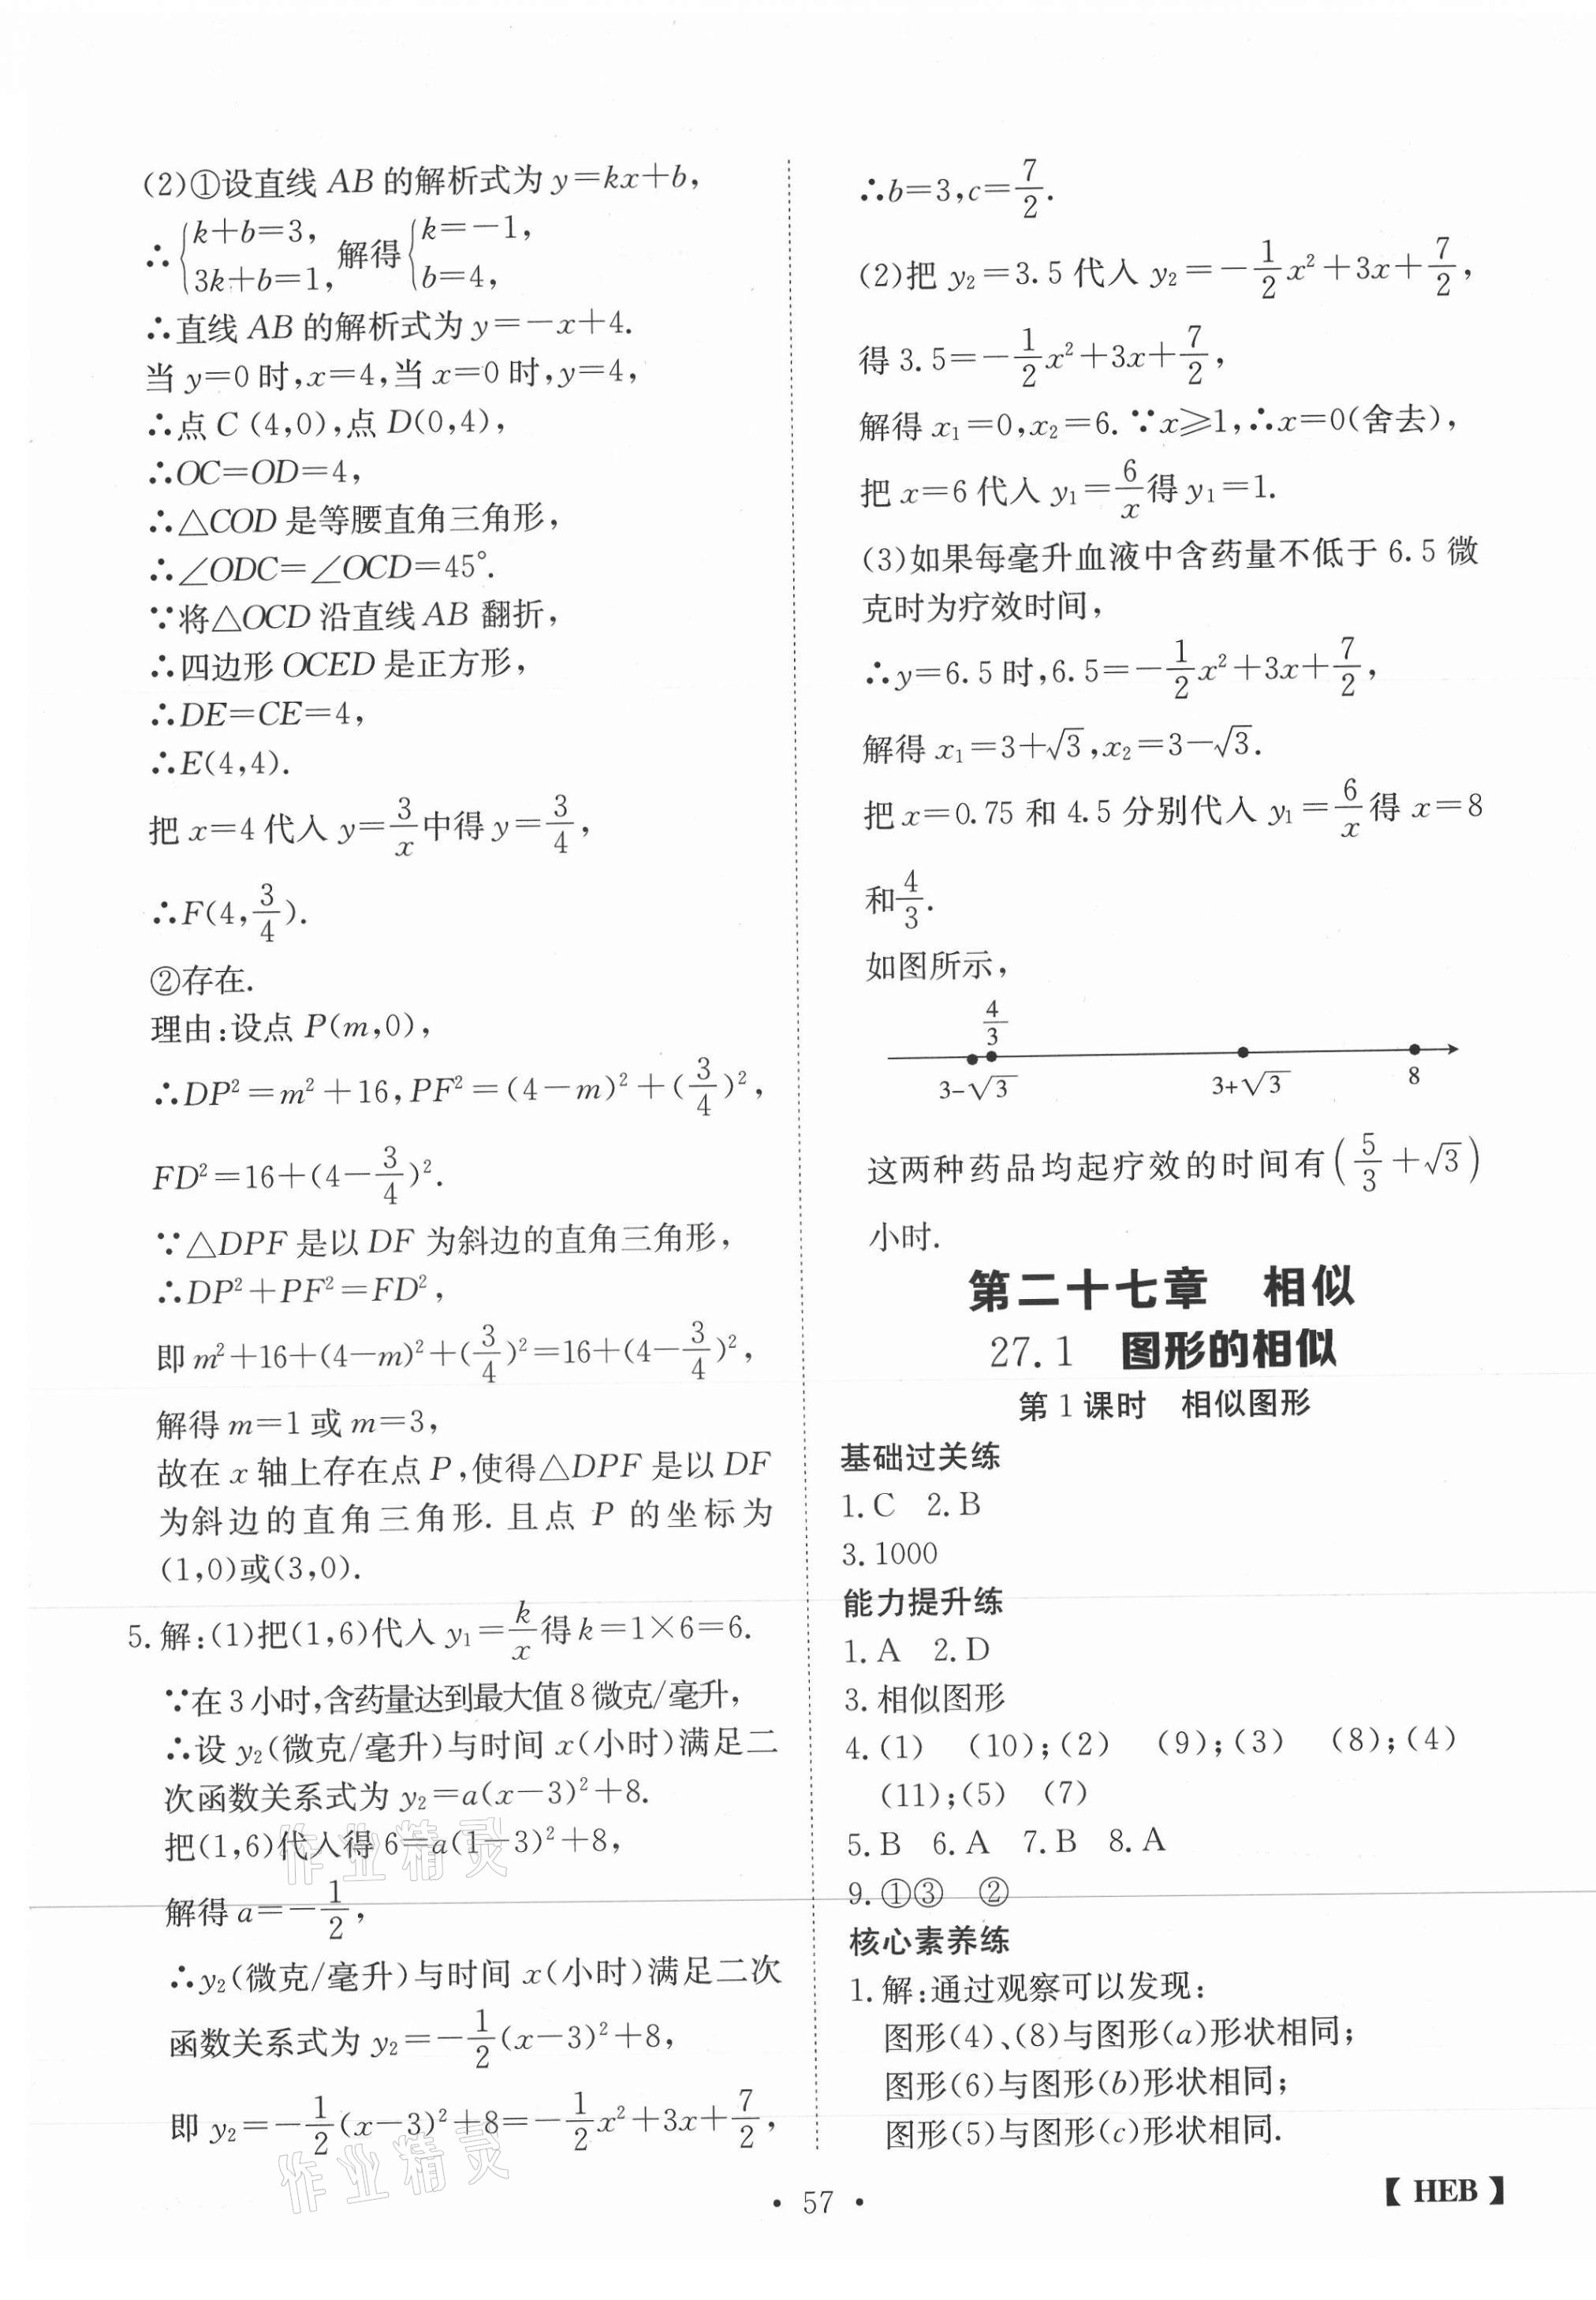 (2)①设直线 AB 的解析式为 y=kx+b,
∴{k+b=3, 3k+b=1, 解得{k=-1, b=4,
∴直线 AB 的解析式为 y=-x+4.
当 y=0 时,x=4,当 x=0 时,y=4,
∴点 C (4,0),点 D(0,4),
∴OC=OD=4,
∴△COD 是等腰直角三角形,
∴∠ODC=∠OCD=45°.
∵将△OCD 沿直线 AB 翻折,
∴四边形 OCED 是正方形,
∴DE=CE=4,
∴E(4,4).
把 x=4 代入 y=3/x中得 y=3/4,
∴F(4,3/4).
②存在.
理由:设点 P(m,0),
∴DP²=m²+16,PF²=(4-m)²+(3/4)²,
FD²=16+(4-3/4)².
∵△DPF 是以 DF 为斜边的直角三角形,
∴DP²+PF²=FD²,
即 m²+16+(4-m)²+(3/4)²=16+(4-3/4)²,
解得 m=1 或 m=3,
故在 x 轴上存在点 P,使得△DPF 是以 DF
为斜边的直角三角形. 且点 P 的坐标为
(1,0)或(3,0).
5. 解:(1)把(1,6)代入 y₁=k/x得 k=1×6=6.
∵在 3 小时,含药量达到最大值 8 微克/毫升,
∴设 y₂(微克/毫升)与时间 x(小时)满足二
次函数关系式为 y₂=a(x-3)²+8.
把(1,6)代入得 6=a(1-3)²+8,
解得 a=-1/2,
∴y₂(微克/毫升)与时间 x(小时)满足二次
函数关系式为 y₂=-1/2(x-3)²+8,
即 y₂=-1/2(x-3)²+8=-1/2x²+3x+7/2,
∴b=3,c=7/2.
(2)把 y₂=3.5 代入 y₂=-1/2x²+3x+7/2,
得 3.5=-1/2x²+3x+7/2,
解得 x₁=0,x₂=6. ∵x⩾1,∴x=0(舍去),
把 x=6 代入 y₁=6/x得 y₁=1.
(3)如果每毫升血液中含药量不低于 6.5 微
克时为疗效时间,
∴y=6.5 时,6.5=-1/2x²+3x+7/2,
解得 x₁=3+√3,x₂=3-√3.
把 x=0.75 和 4.5 分别代入 y₁=6/x得 x=8
和4/3.
如图所示,
4/3
3-√3 3+√3 8
这两种药品均起疗效的时间有(5/3+√3)
小时.
第二十七章 相似
27.1 图形的相似
第 1 课时 相似图形
基础过关练
1. C 2. B
3. 1000
能力提升练
1. A 2. D
3. 相似图形
4. (1) (10);(2) (9);(3) (8);(4)
(11);(5) (7)
5. B 6. A 7. B 8. A
9. ①③ ②
核心素养练
1. 解:通过观察可以发现:
图形(4)、(8)与图形(a)形状相同;
图形(6)与图形(b)形状相同;
图形(5)与图形(c)形状相同.
• 57 •
【 HEB 】
作业精灵
作业精灵